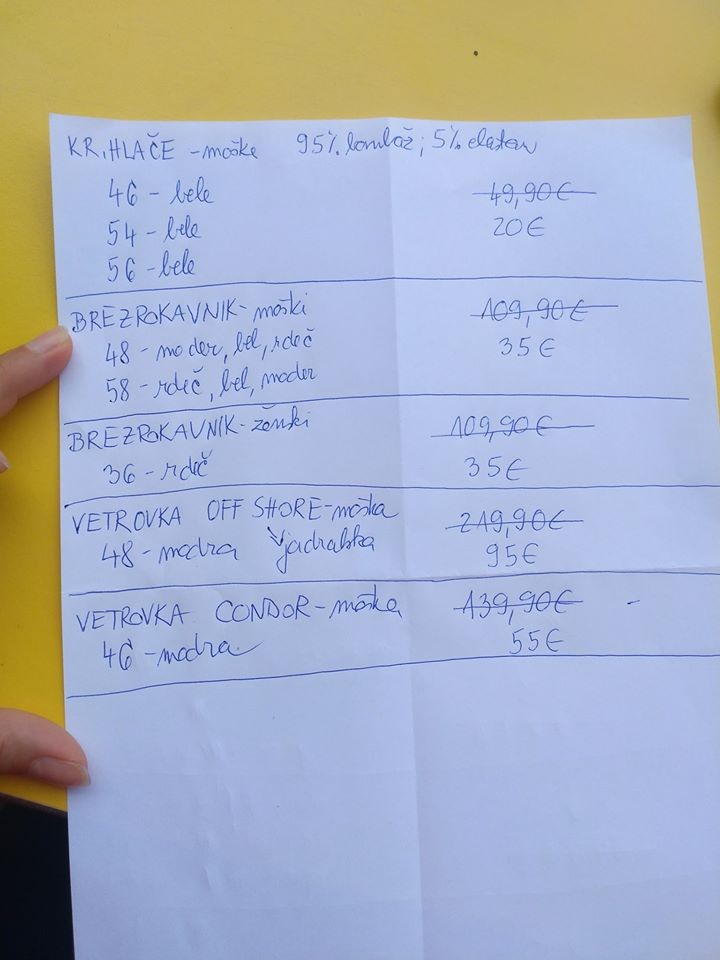 KR. HLAČE - moške 95% bombaž; 5% elastan
46 - bele 49,90€
54 - bele 20€
56 - bele
BREZROKAVNIK - moški 109,90€
48 - moder, bel, rdeč 35€
58 - rdeč, bel, moder
BREZROKAVNIK - ženski 109,90€
36 - rdeč 35€
VETROVKA OFF SHORE - moška 219,90€
48 - modra jadralska 95€
VETROVKA CONDOR - moška 139,90€ -
46 - modra 55€